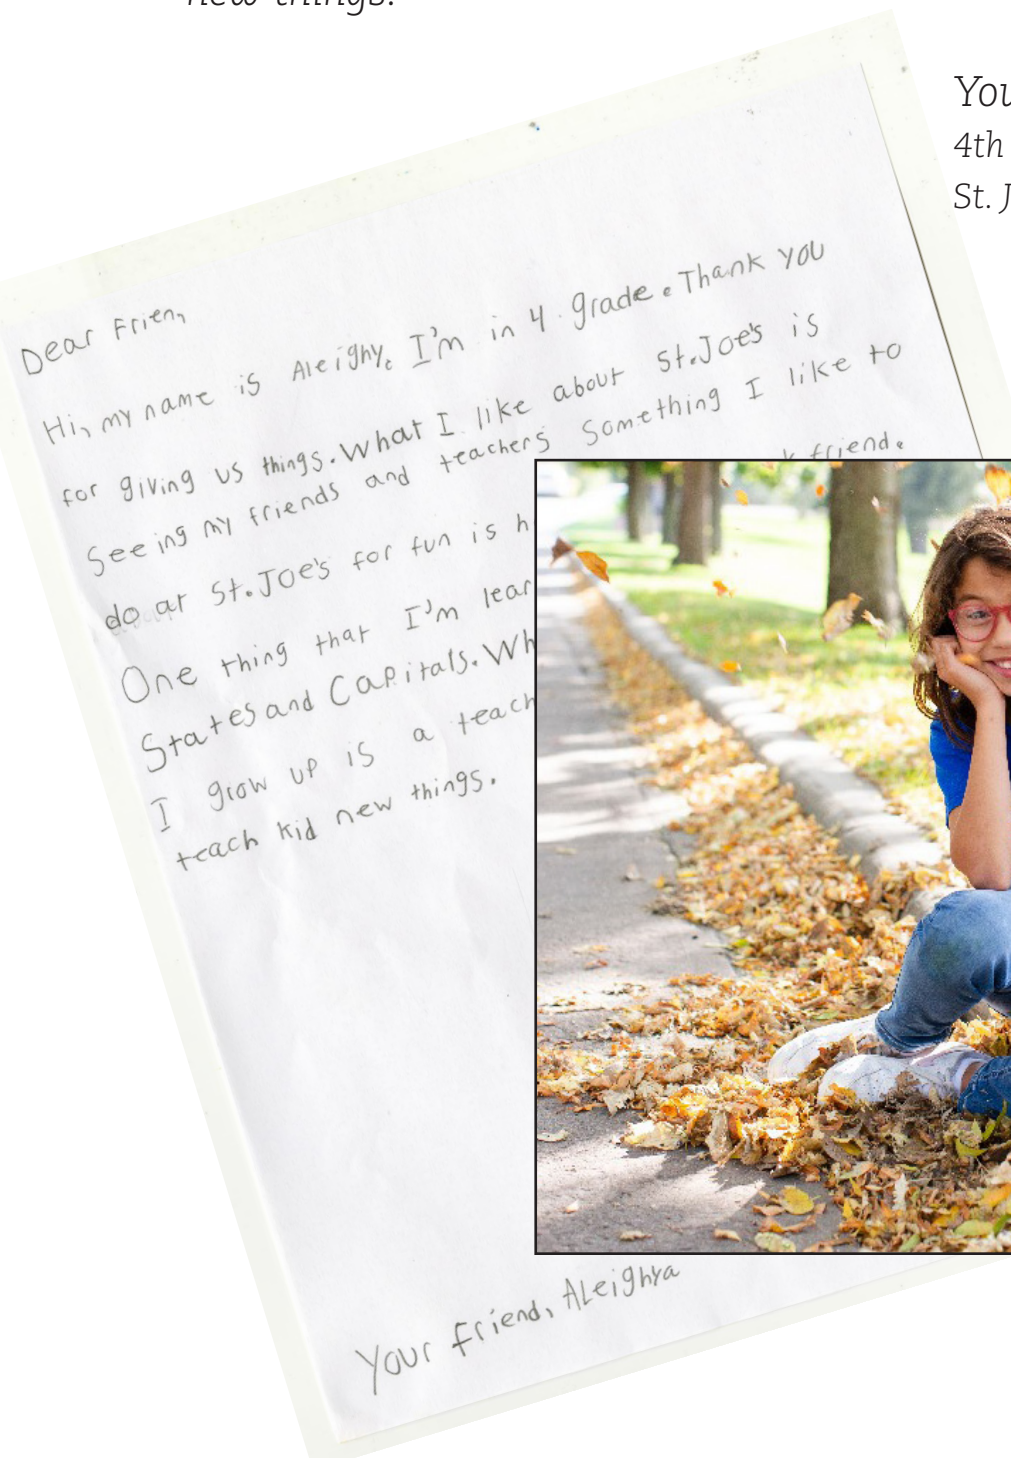 new things.
You
4th
St. J
Dear Frien,
Hi, my name is Aleighy. I'm in 4. grade. Thank you
for giving us things. What I like about St.Joe's is
Seeing my friends and teachers Something I like to
do at St.Joe's for fun is h k friend.
One thing that I'm lear
States and Capitals. Wh
I grow up is a teach
teach kid new things.
Your friend, Aleighya